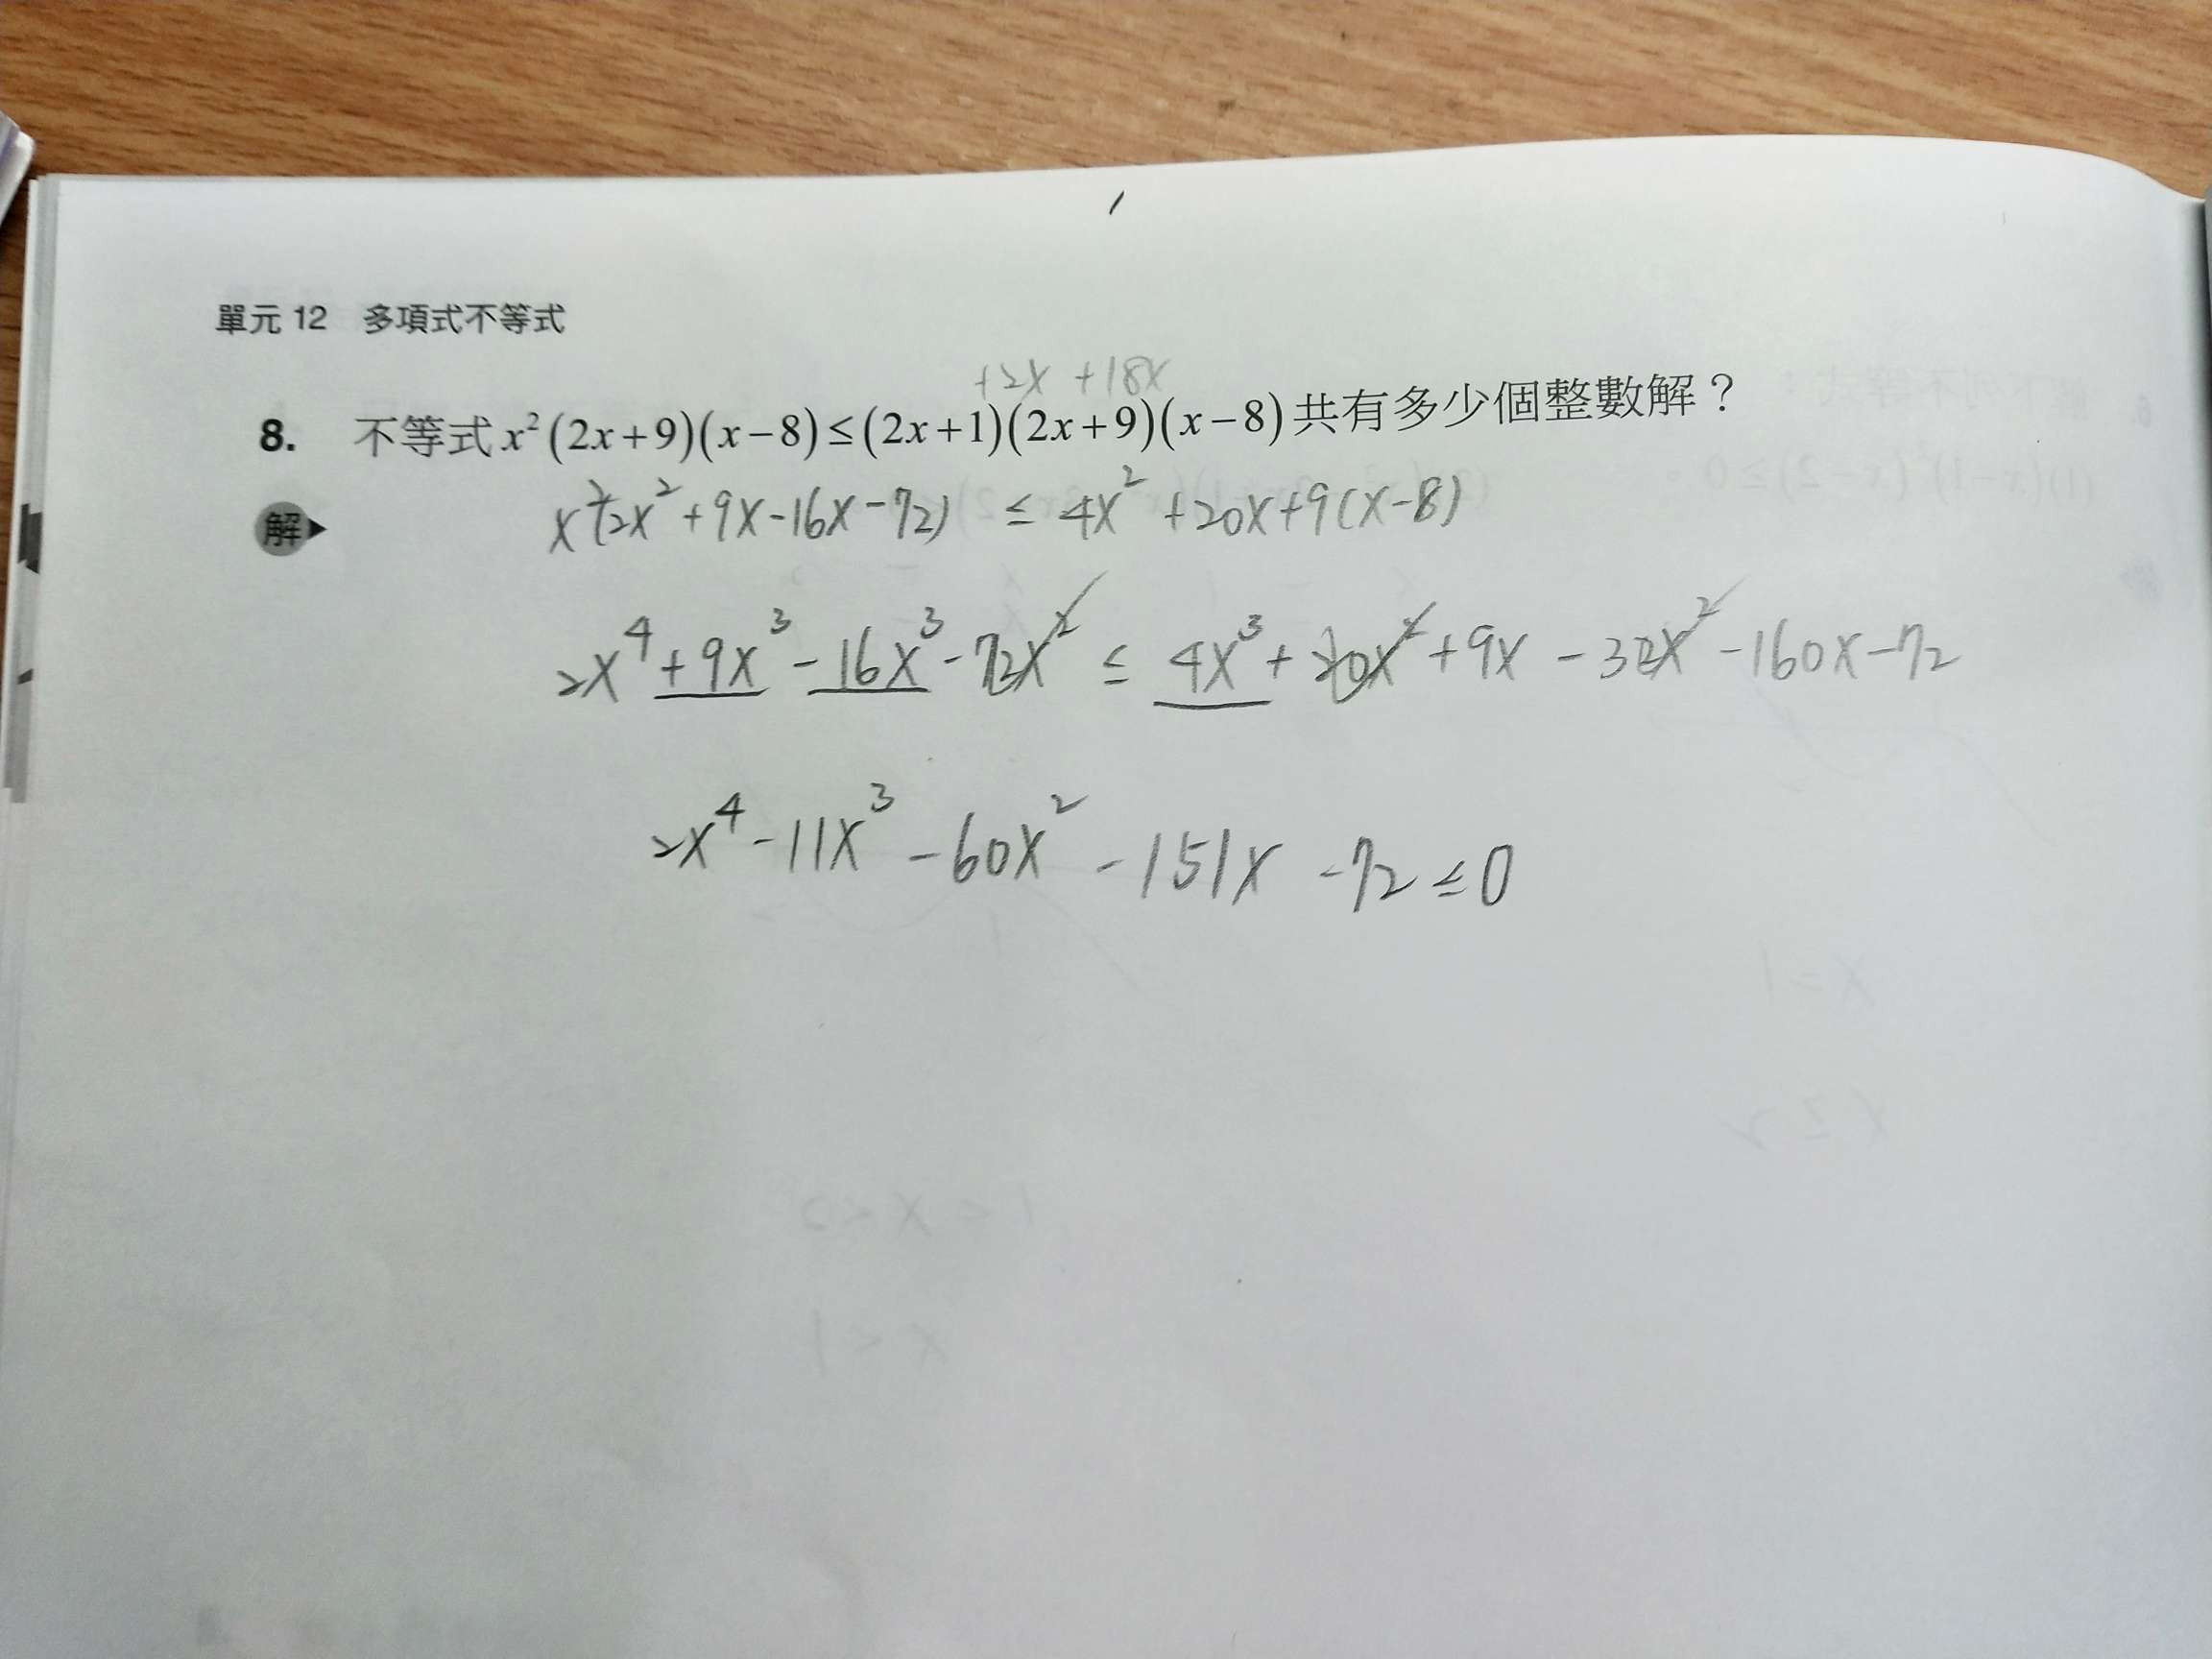 單元 12 多項式不等式
+2x +18x
8. 不等式 x²(2x+9)(x−8)≤(2x+1)(2x+9)(x−8)共有多少個整數解？
解▶ x²(2x²+9x-16x-72) ≤ 4x²+20x+9(x-8)
2x⁴+9x³-16x³-72x² ≤ 4x³+20x²+9x-32x²-160x-72
2x⁴-11x³-60x²-151x-72≤0